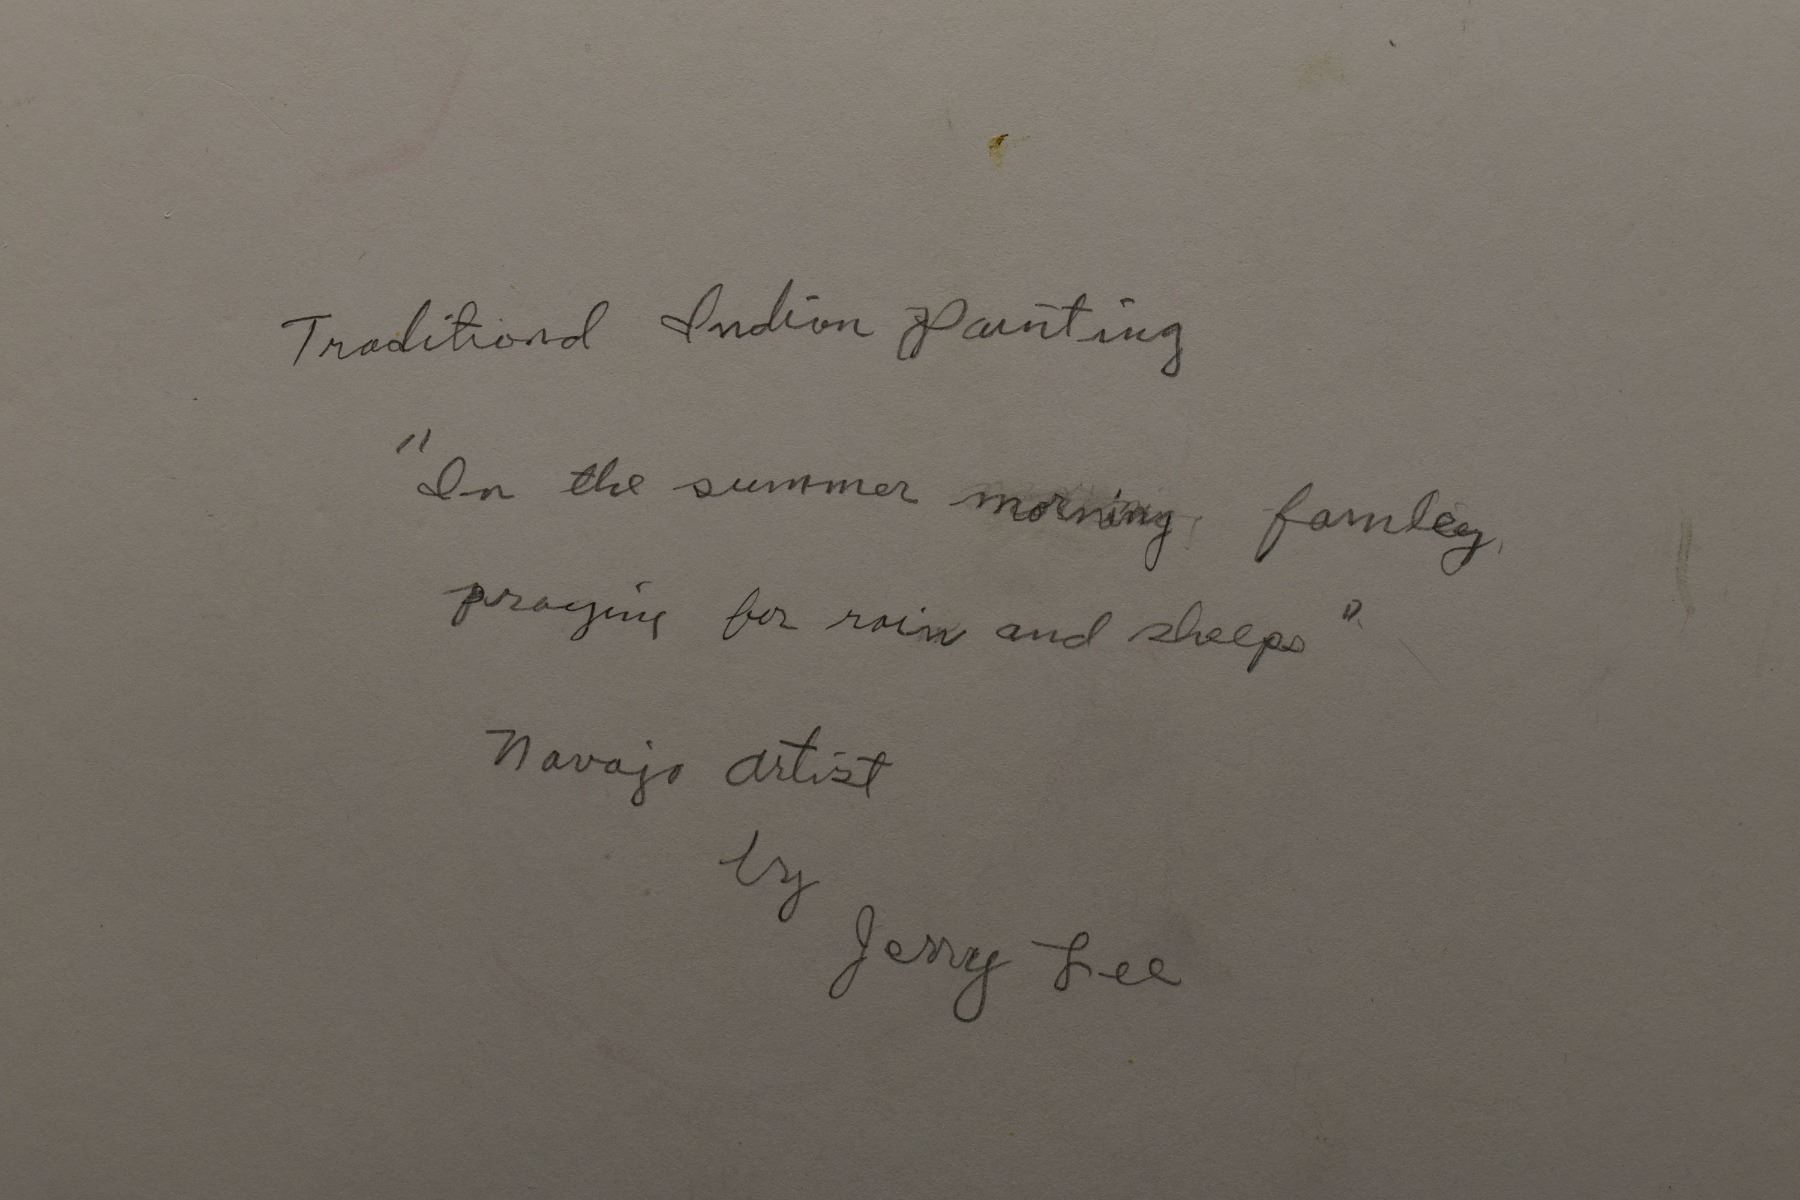 Traditional Indian Painting
"In the summer morning, famley,
praying for rain and sheeps"
Navajo artist
by
Jerry Lee